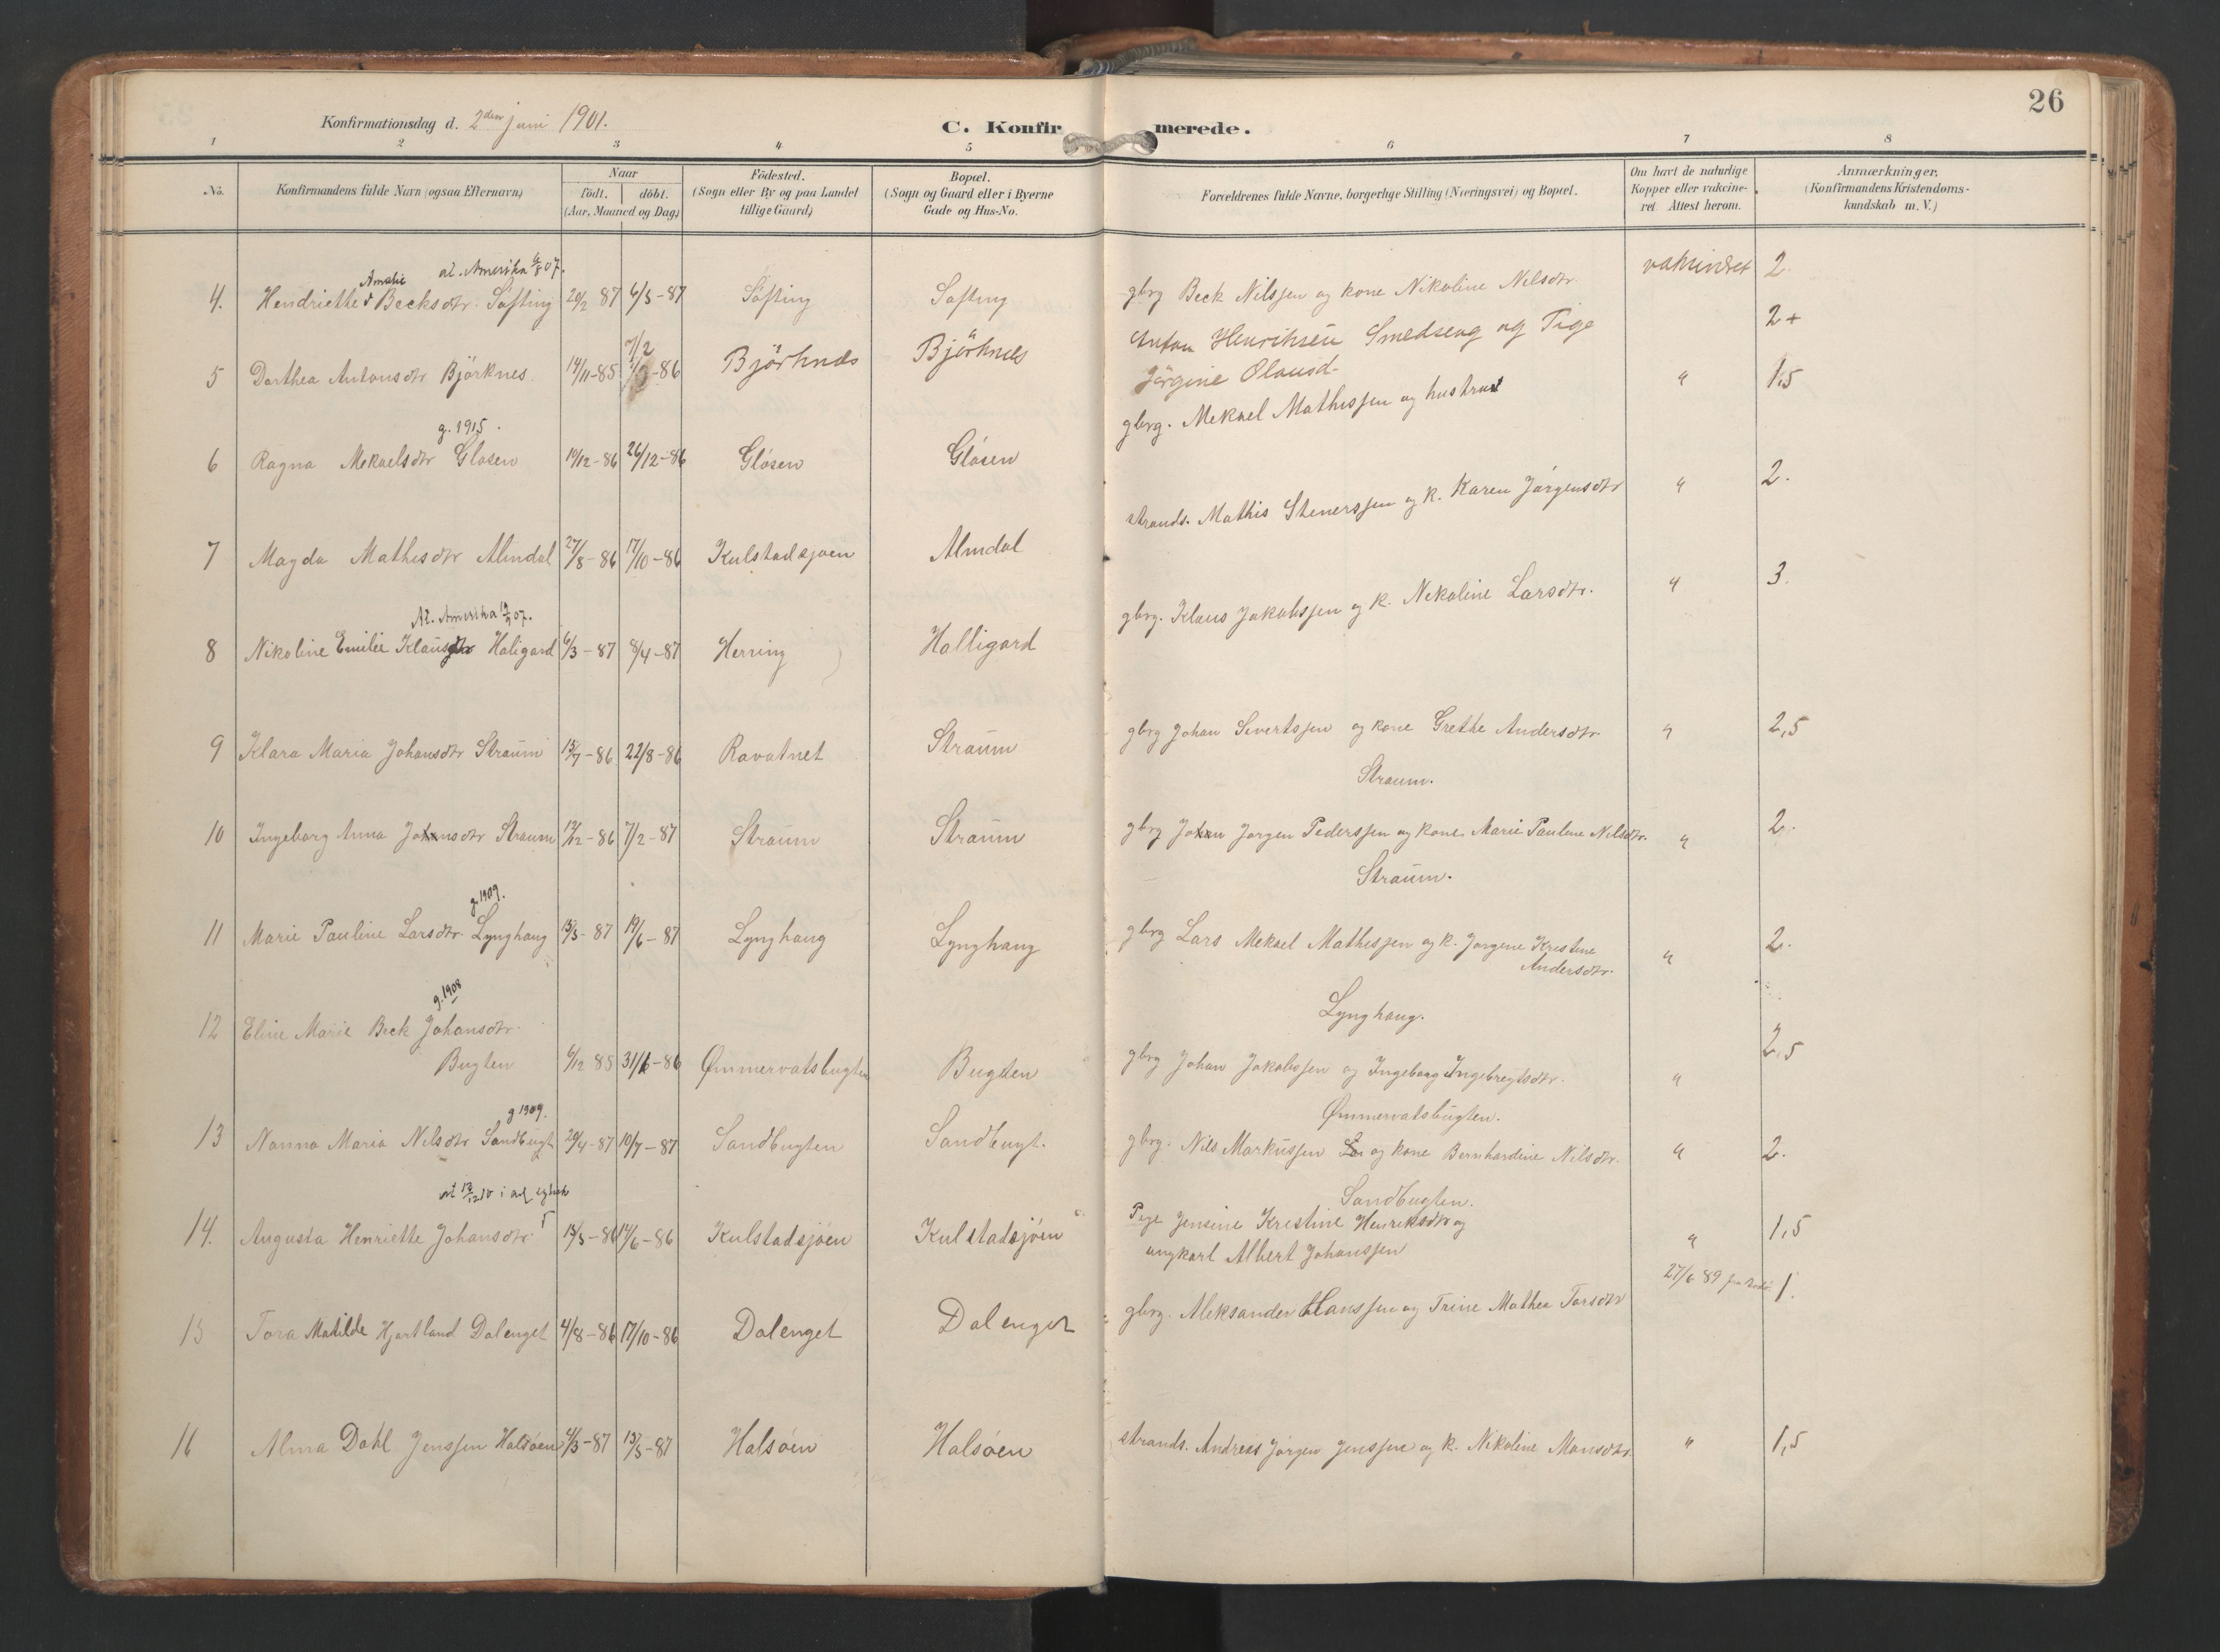 26
Konfirmationsdag d. 2den juni 1901.
C. Konfirmerede.
1 2 3 4 5 6 7 8
No.
Konfirmandens fulde Navn (ogsaa Efternavn)
Naar
födt. döbt.
(Aar, Maaned og Dag)
Födested.
(Sogn eller By og paa Landet
tillige Gaard)
Bopæl.
(Sogn og Gaard eller i Byerne
Gade og Hus-No.
Forældrenes fulde Navne, borgerlige Stilling (Næringsvei) og Bopæl.
Om havt de naturlige
Kopper eller vakcine-
ret. Attest herom.
Anmærkninger.
(Konfirmandens Kristendoms-
kundskab m. V.)
Amalie at. Amerika 6/8 07.
4. Hendriette Becksdtr. Söfting 20/2 87 6/5-87 Söfting Söfting gbrg Beck Nilssen og kone Nikoline Nilsdtr. vaksineret 2
7/2
5 Dorthea Antonsdtr Björknes 14/11-85 -86 Björknæs Björknes Anton Henriksen Smedseng og Pige 2+
Jörgine Olausd-
g. 1915.
6 Ragna Mekaelsdtr Glosen 19/12-86 26/12-86 Glösen Glösen gbrg. Mekael Mathissen og hustru " 1,5
7 Magda Mathisdtr Almdal 27/8-86 17/10-86 Kulstadsjøen Almdal strands. Mathis Stenerssen og k. Karen Jörgensdtr " 2.
At. Amerika 07.
8 Nikoline Emilie Klausdtr Haligard 6/3-87 8/4-87 Herring Halligard gbrg. Klaus Jakobssen og k. Nekoline Larsdtr. " 3.
9 Klara Maria Johansdtr Straum 15/7-86 22/8-86 Ravatnet Straum gbrg Johan Sivertssen og kone Grethe Andersdtr. " 2,5
Straum.
10 Ingeborg Anna Johansdtr Straum 12/12-86 7/2-87 Straum Straum gbrg Johan Jorgen Pederssen og kone Marie Pauline Nilsdtr. " 2.
Straum.
g. 1909.
11 Marie Pauline Larsdtr. Lynghaug 15/3-87 19/6-87 Lynghaug Lynghaug gbrg Lars Mekael Mathissen og k. Jorgine Kristine " 2.
Andersdtr.
Lynghaug.
g. 1908
12 Eline Marie Beck Johansdtr.
Bugten 6/12 85 31/1-86 Ømmervatsbugten Bugten gbrg Johan Jakobssen og Ingeborg Ingebregtsdtr. " 2,5
Ømmervatsbugten.
g 1909.
13 Nanna Maria Nilsdtr Sandbugt 20/4-87 10/7-87 Sandbugten Sandbugt. gbrg. Nils Markussen og kone Bernhardine Nilsdtr. " 2.
Sandbugten.
at 13/12 10 i
14. Augusta Henriette Johansdtr 15/5-86 14/6-86 Kulstadsjøen Kulstadsjöen Pige Jensine Kristine Henriksdtr og " 1,5
ungkarl Albert Johanssen
15 Tora Matilde Hjortland Dalenget 4/8-86 17/10-86 Dalenget Dalenget gbrg. Aleksander Hanssen og Trine Mathea Torsdtr 27/6 89 1.
16 Alma Dahl Jenssen Halsöen 4/3-87 15/5-87 Halsöen Halsöen strands. Andreas Jörgen Jenssen og k. Nikoline Monsdtr. " 1,5